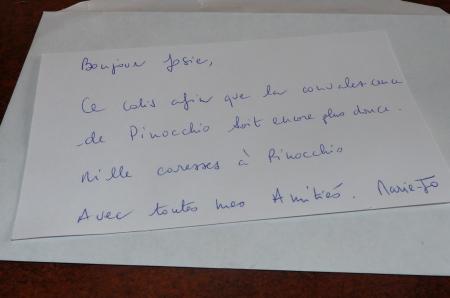 Bonjour Josie,
Ce colis afin que la convalescence
de Pinocchio soit encore plus douce.
Mille caresses à Pinocchio
Avec toutes mes Amitiés. Marie-Jo